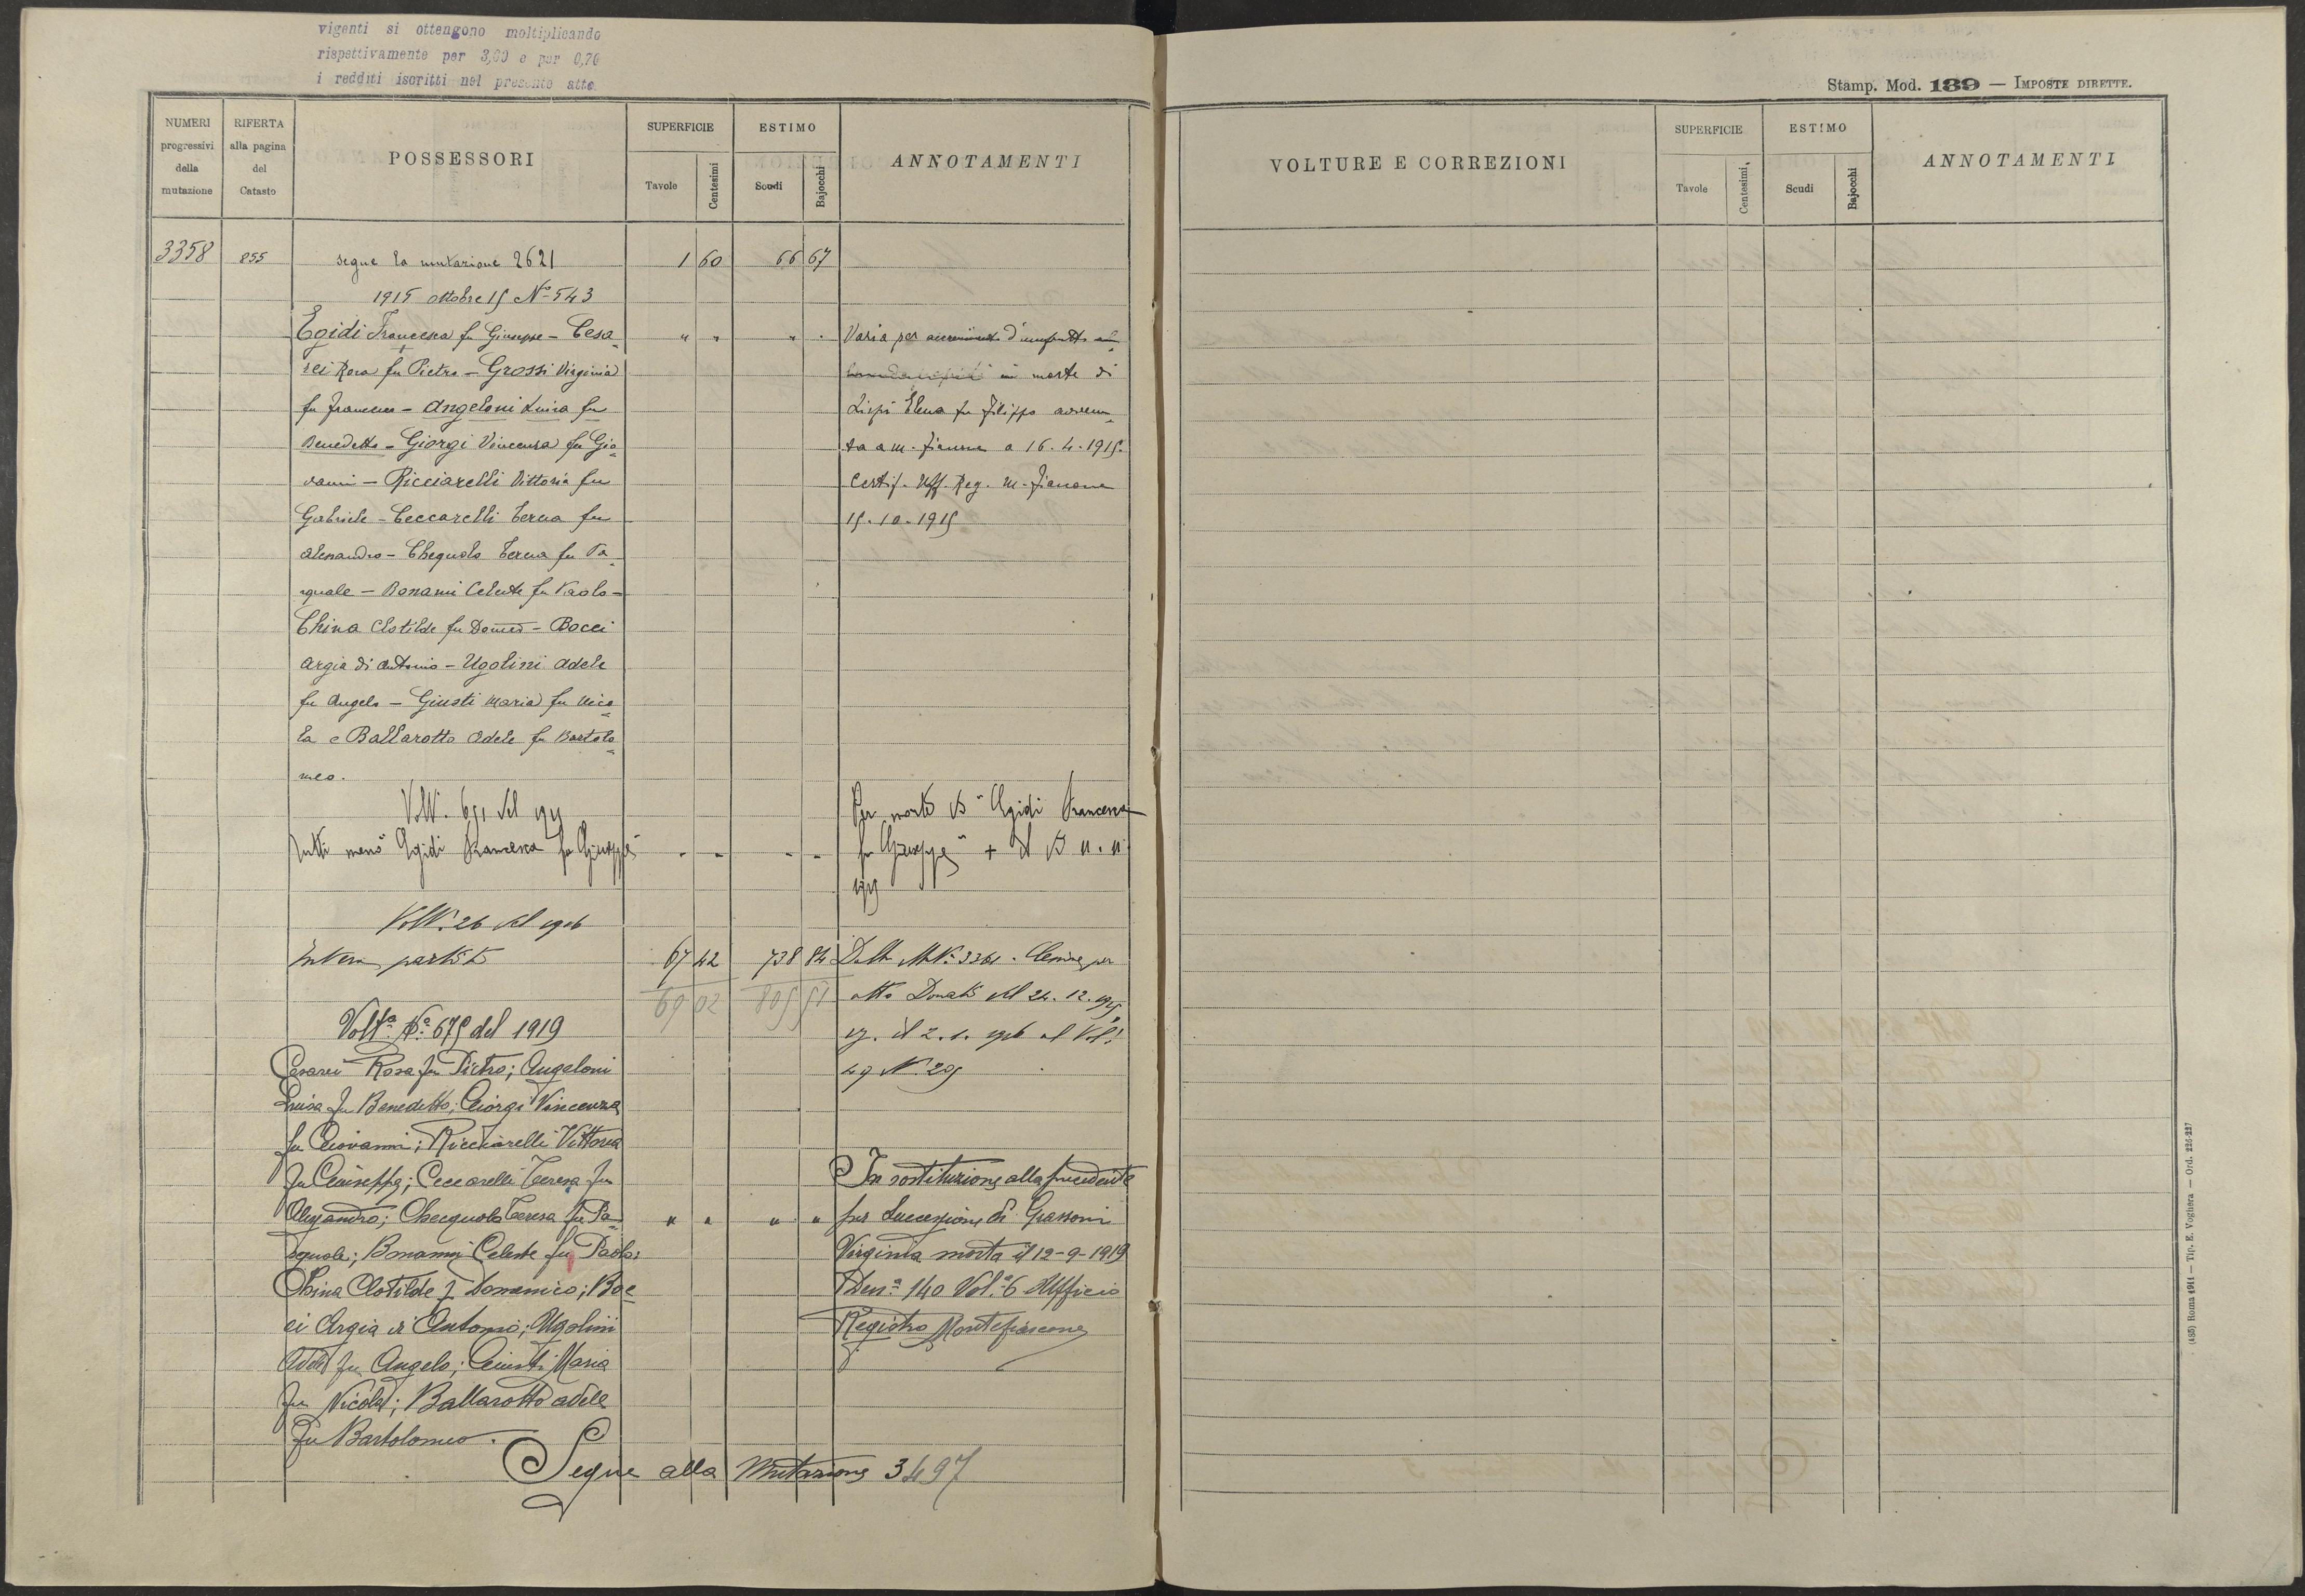 vigenti si ottengono moltiplicando
rispettivamente per 3,60 e per 0,70
i redditi iscritti nel presente atto.
NUMERI progressivi della mutazione
RIFERTA alla pagina del Catasto
POSSESSORI
SUPERFICIE
Tavole
Centesimi
ESTIMO
Scudi
Bajocchi
ANNOTAMENTI
3358 855 segue la mutazione 2621 1 60 66 67
1915 ottobre 15 No 543
Egidi Francesca fu Giuseppe - Cesa= " " " " Varia per
rei Rosa fu Pietro - Grossi Virginia in morte di
fu Francesco - Angeloni Luisa fu Lispi Elena fu Filippo avvenu=
Benedetto - Giorgi Vincenza fu Gio= ta a M. Fiascone a 16.4.1915.
vanni - Ricciarelli Vittoria fu Certif. Uff. Reg. M. Fiascone
Gabriele - Ceccarelli Teresa fu 15.10.1915
Alessandro - Chequolo Teresa fu Pa=
squale - Bonanni Celeste fu Paolo -
China Clotilde fu Domco - Bocci
Argia di Antonio - Ugolini Adele
fu Angelo - Giusti Maria fu Nico=
la e Ballarotto Adele fu Bartolo=
meo.
Per morte di "Egidi Francesca
Tutti meno "Egidi Francesca fu Giuseppe" " " " " fu Giuseppe" +
Volt. 26 del 1916
Intera partita 67 42 738 84 Dalla M. No 3361.
69 02 805 51 atto Donati del 24.12.1915,
Volta No 675 del 1919 il 2.1.1916 al Vol.
Cesarei Rosa fu Pietro; Angeloni 49 N. 205
Luisa fu Benedetto; Giorgi Vincenza
fu Giovanni; Ricciarelli Vittoria
fu Giuseppe; Ceccarelli Teresa fu In sostituzione alla precedente
Alessandro; Checquolo Teresa fu Pa= " " " " per successione di Grassoni
squale; Bonanni Celeste fu Paolo; Virginia morta il 12-9-1919
China Clotilde f. Domenico; Boc= Den.a 140 Vol. 6 Ufficio
ci Argia di Antonio; Ugolini Registro Montefiascone
Adele fu Angelo; Giusti Maria
fu Nicola; Ballarotto Adele
fu Bartolomeo.
Segue alla Mutazione 3497
Stamp. Mod. 189 — IMPOSTE DIRETTE.
VOLTURE E CORREZIONI
SUPERFICIE
Tavole
Centesimi,
ESTIMO
Scudi
Bajocchi
ANNOTAMENTI
(485) Roma 1911 — Tip. E. Voghera — Ord. 226-227